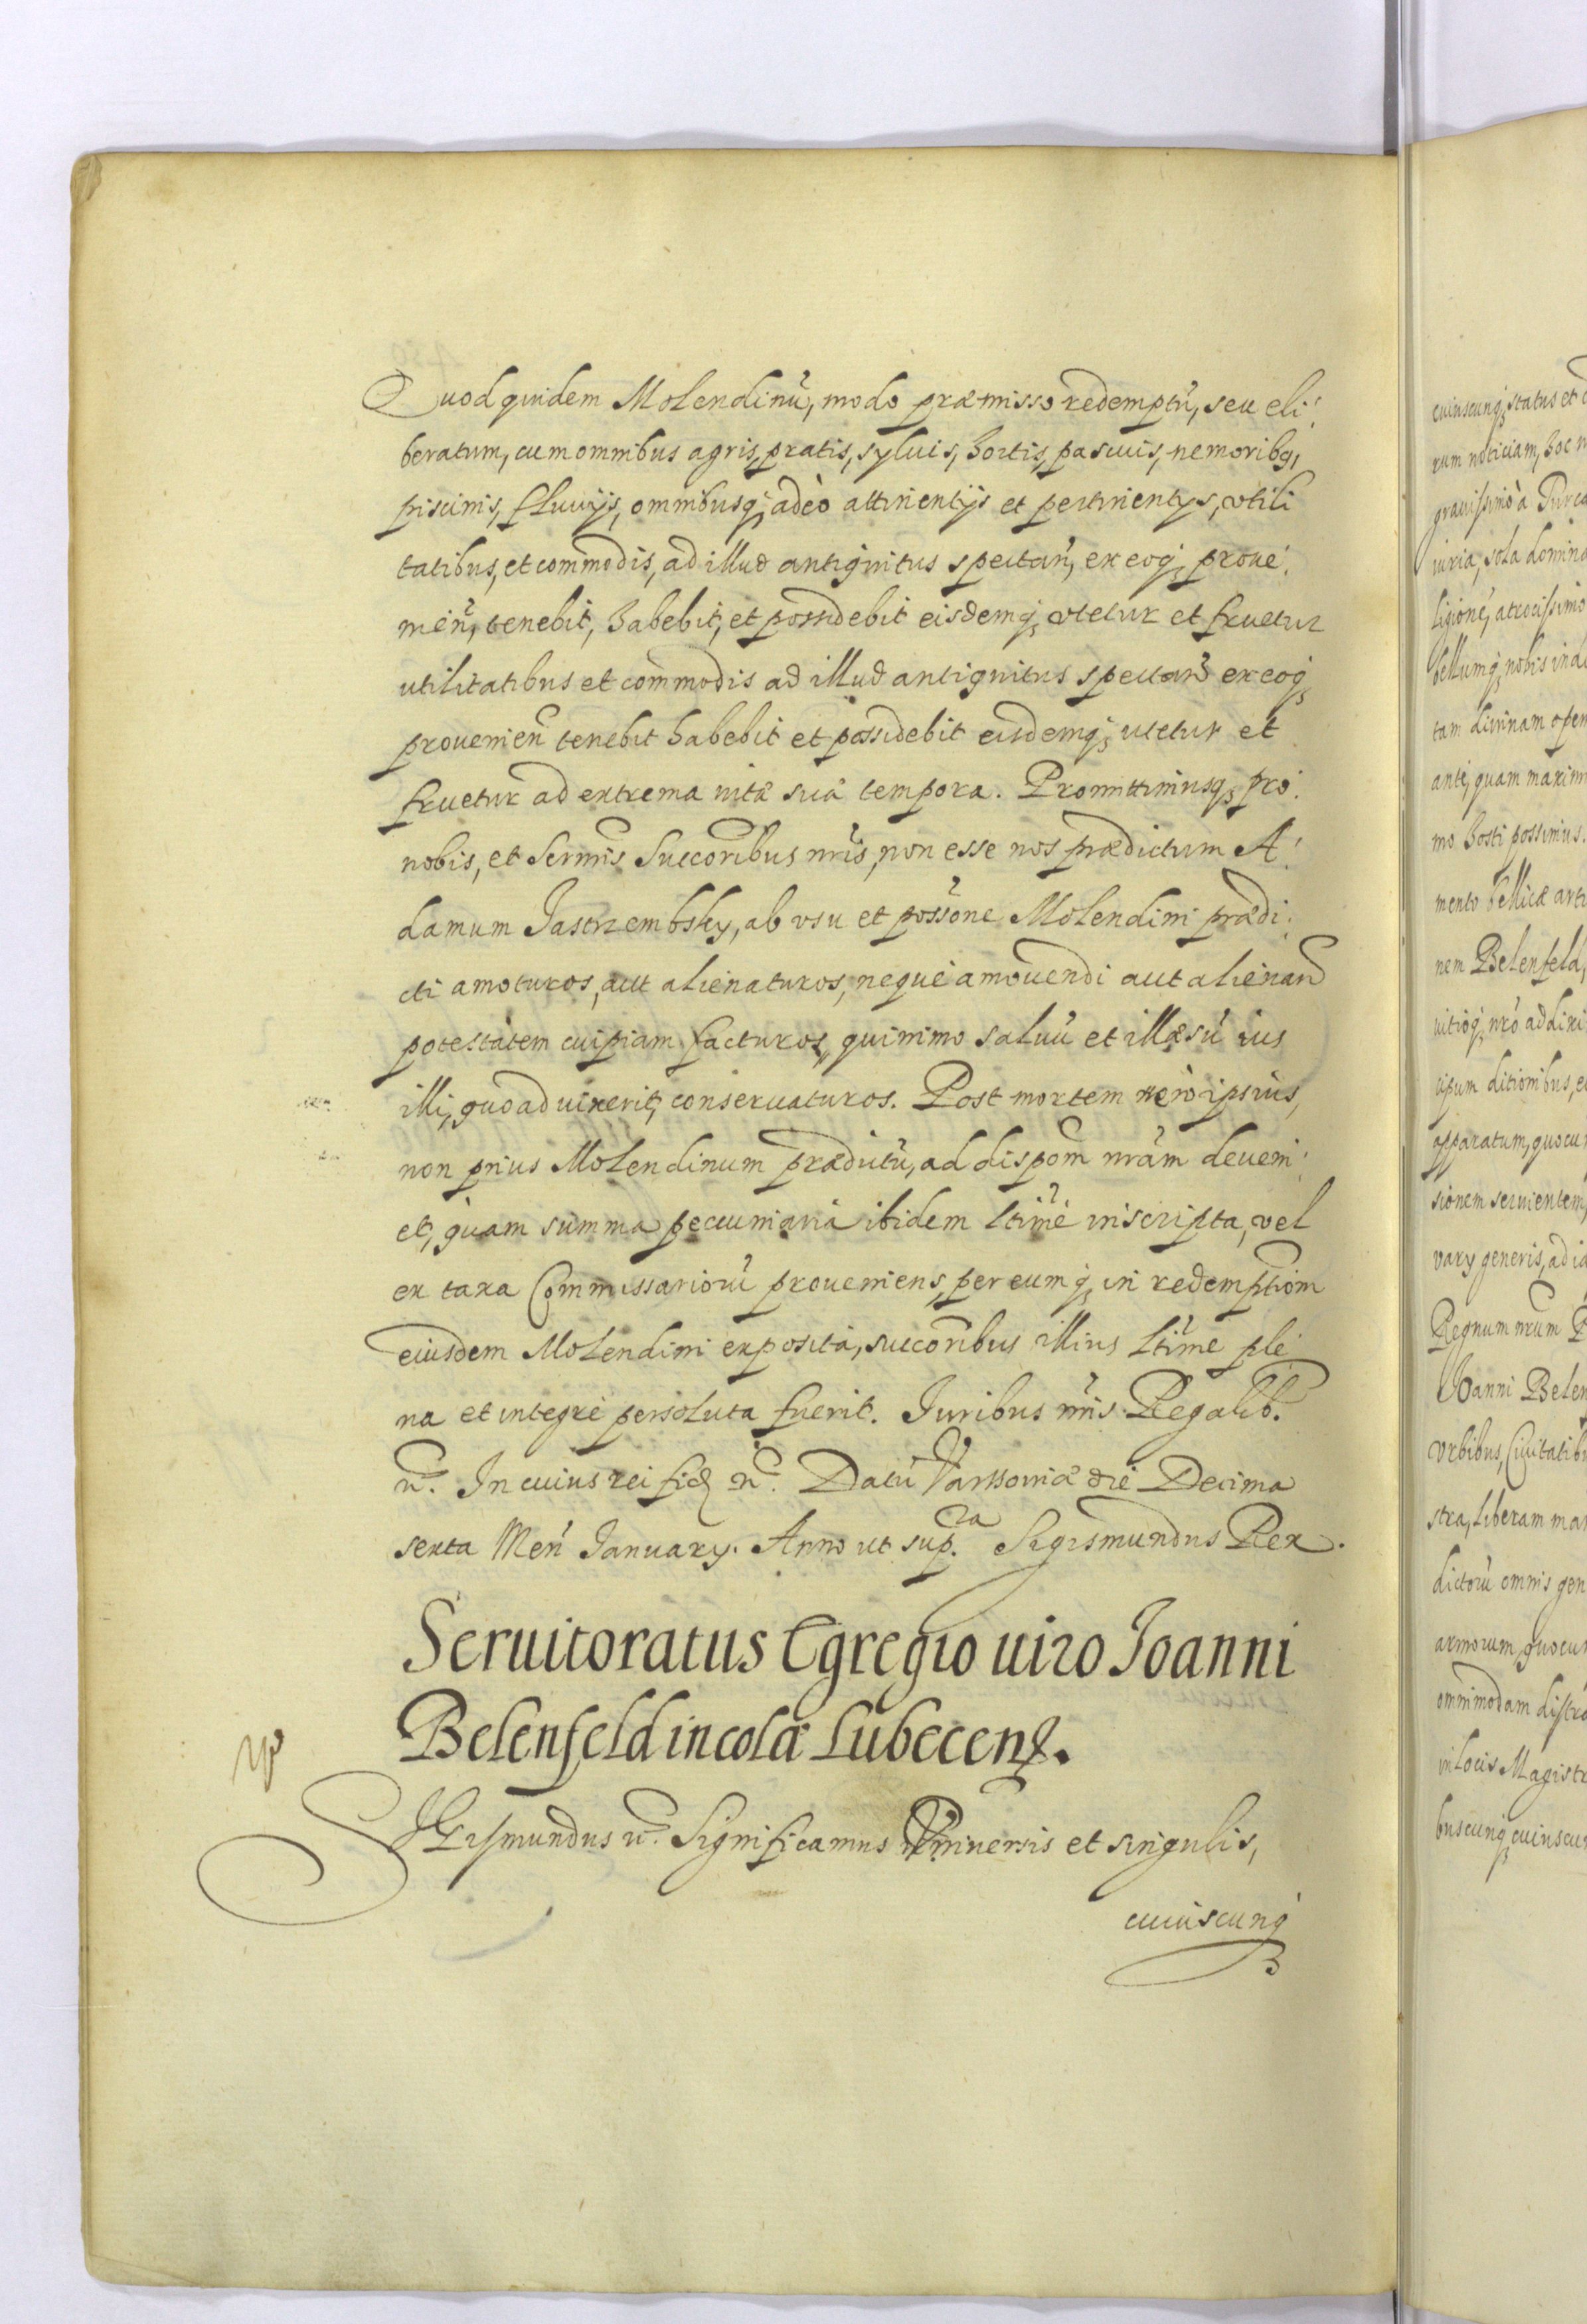 Quod quidem Molendinũ, modo præmisso redemptũ, seu eli
beratum, cum omnibus agris, pratis, syluis, hortis, pascuis, nemoribq,
piscinis, fluuijs, omnibusq; adeò attinentijs et pertinentys, vtili
tatibus, et commodis, ad illud antiquitus spectañ, ex eoq; proue
nień, tenebit, habebit, et possidebit eisdemq; vtetur et fruetur
utilitatibus et commodis ad illud antiquitus spectañ ex eoq;
prouenień tenebit habebit et possidebit eisdemq; utetur et
fruetur ad extrema uitæ suæ tempora. Promittimusq; pro
nobis, et Sermis Succoribus nris, non esse nos prædictum A
damum Jastrzembsky, ab vsu et possone Molendini prædi
cti amoturos, aut alienaturos, neque amouendi aut alienand
potestatem cuipiam facturos, quinimo saluũ et illæsũ ius
illi, quoad uixerit, conseruaturos. Post mortem uerò ipsius,
non prius Molendinum prædictũ, ad dispom nram deueni
et, quam summa pecuniaria ibidem ltime inscripta, vel
ex taxa Commissariorũ proueniens, per eumq; in redemptiom
eiusdem Molendini exposita, succoribus illius ltime ple
na et integre persoluta fuerit. Juribus nris Regalib.
rc. In cuius rei fid rc. Datũ Varssouiæ die Decima
sexta Meń January. Anno ut sup.ra Sigismundus Rex.
Seruitoratus Egregio uiro Joanni
Belenfeld incolæ Lubecens.
SIGismundus rc. Significamus Vniuersis et singulis,
cuiuscunq
cuiuscunq; status et
rum noticiam, hoc
grauissimo à Turca
iuria, sola domina
ligione, atrocissimo
bellumq; nobis
tam diuinam open
ante, quam maxim
mo hosti possimus.
mento bellicæ
nem Belenfeld,
uitioq; nrõ
cipum ditionibus,
apparatum, quocu
sionem seruientem,
vary generis, ad
Regnum nrum
Joanni Belen
Vrbibus, Ciuitatib
stra, liberam
dictorũ omnis gen
armorum, quocu
omnimodam distra
in locis Magistr
buscunq; cuiuscu